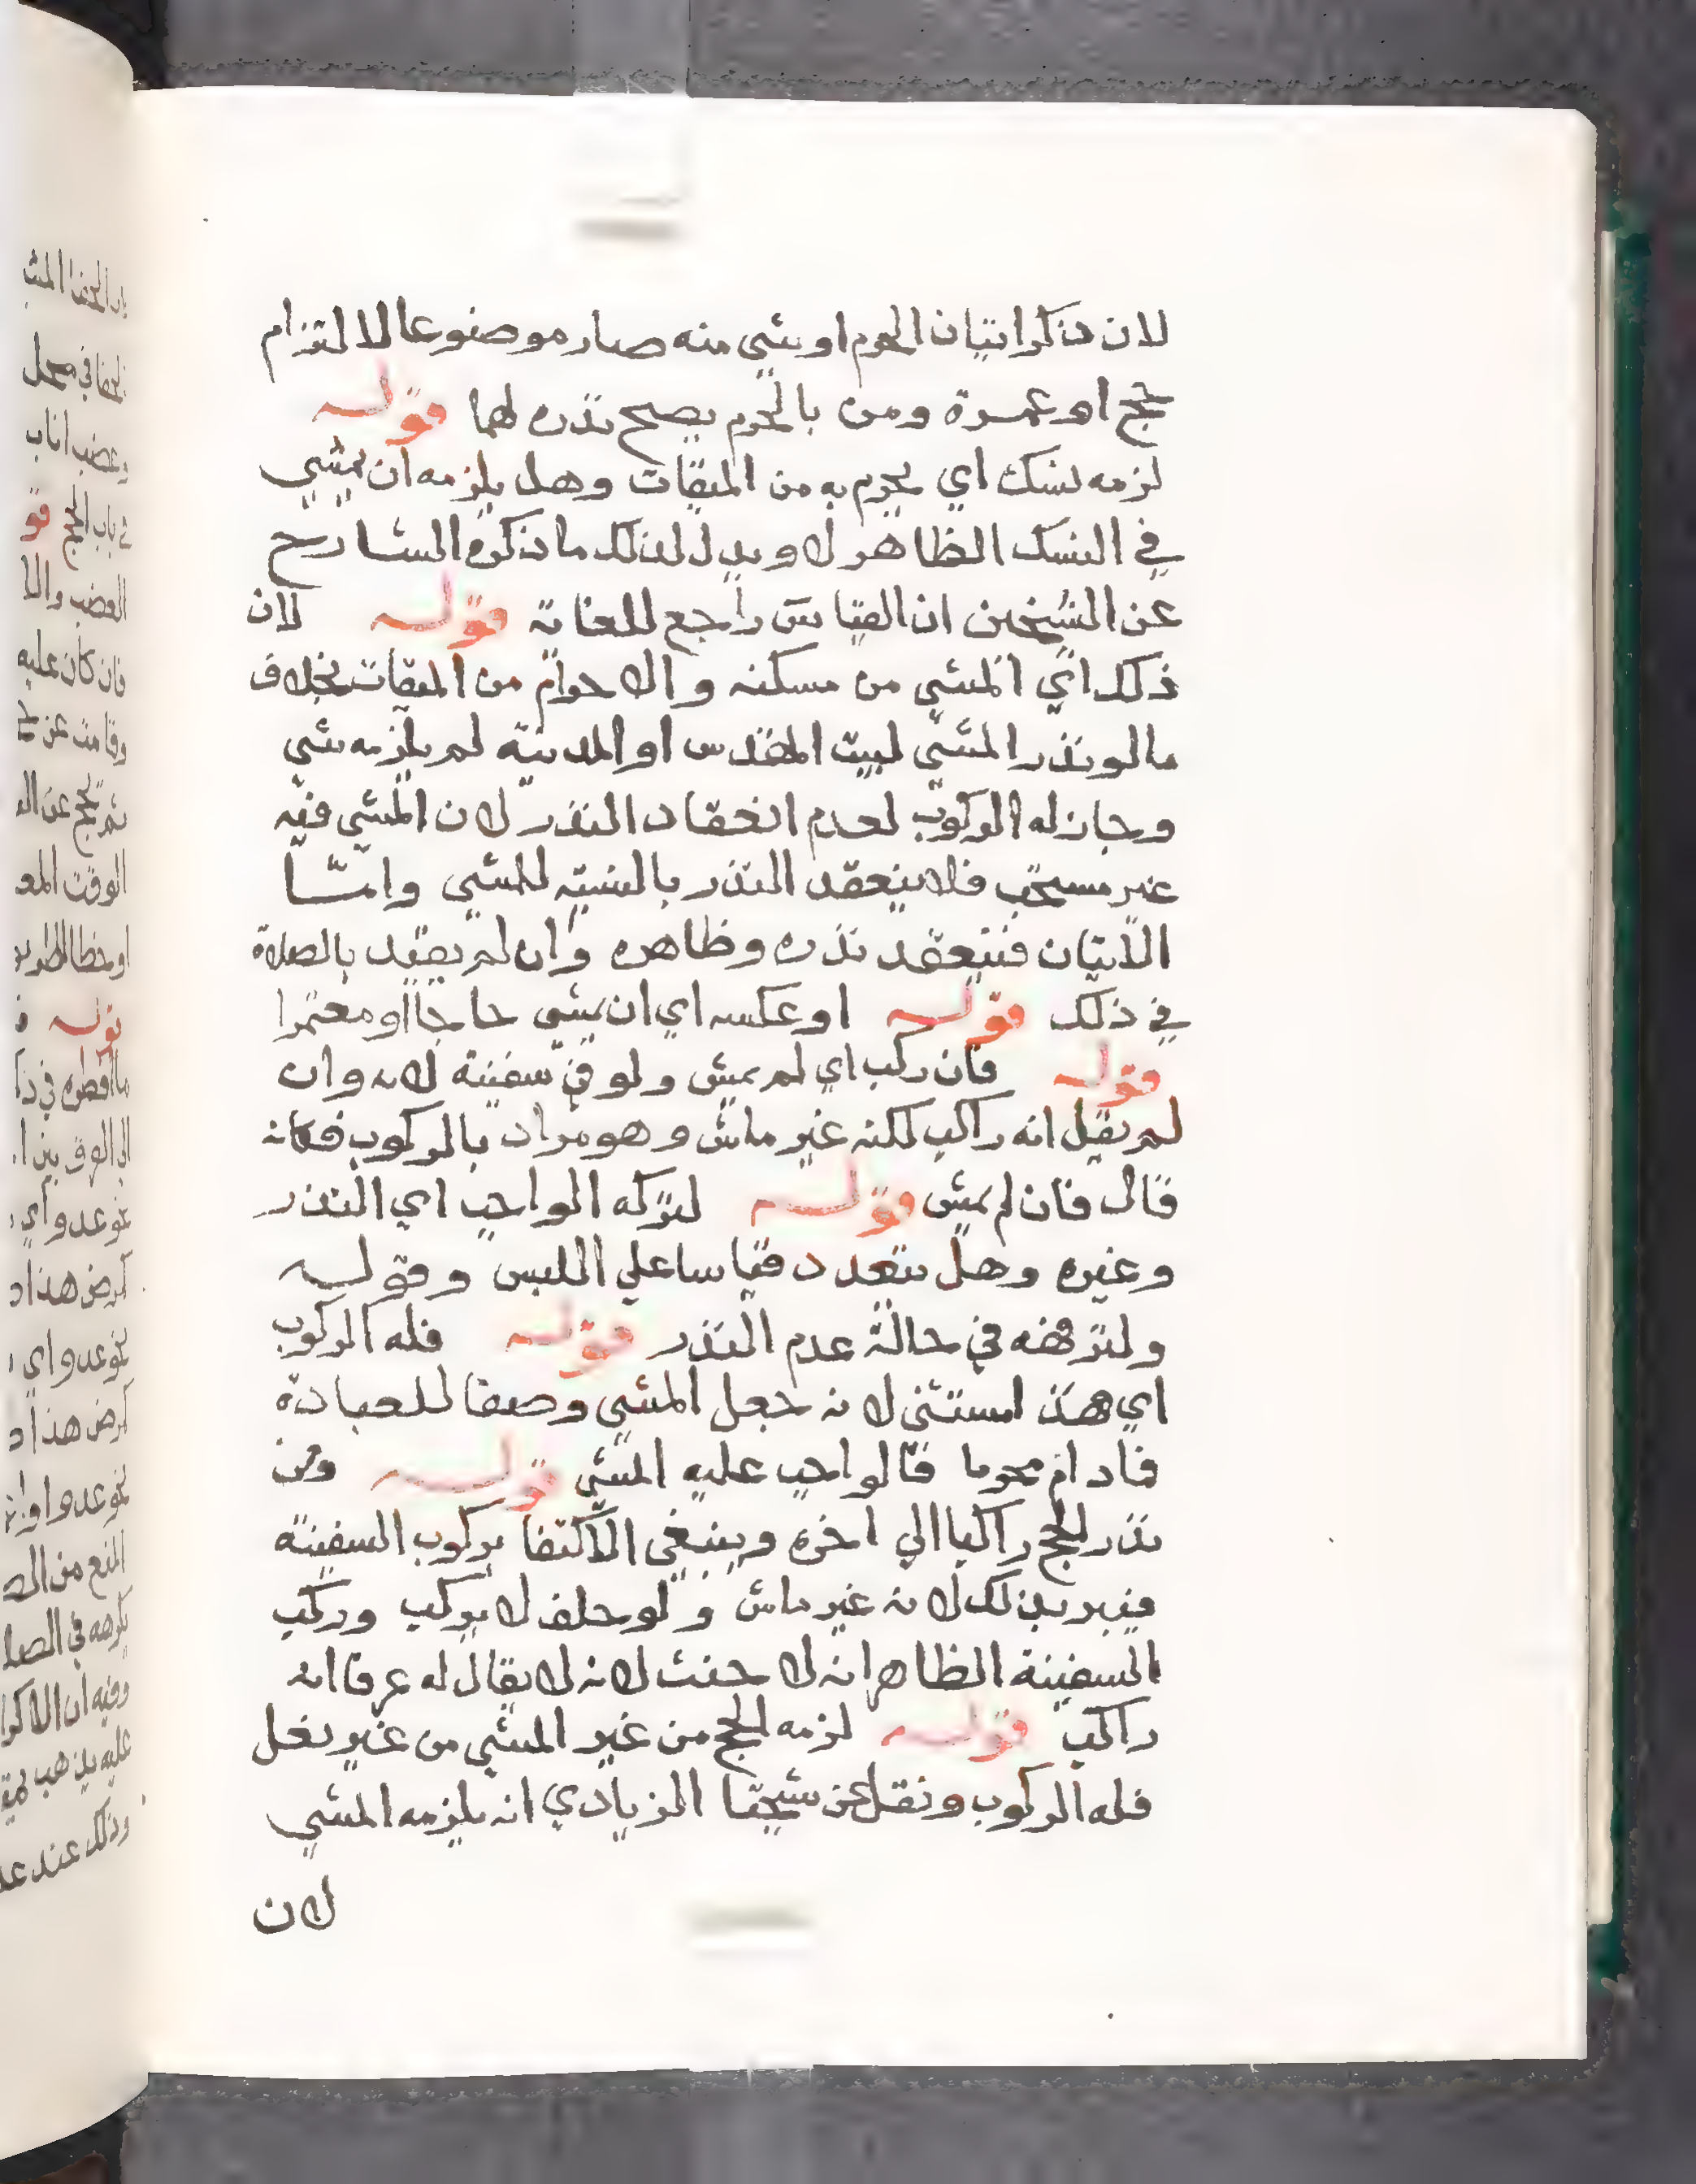 لان ذكر اتيان الحرم او شي منه صار موضوعا لالتزام
حج او عمرة ومن بالحرم يصح نذره لهما قوله
لزمه نسك اي يحرم به من الميقات وهل يلزمه ان يمشي
في النسك الظاهر لا ويدل لذلك ما ذكره الشارح
عن الشيخين ان القياس راجع للغاية قوله لان
ذلك اي المشي من مسكنه والاحرام من الميقات بخلاف
ما لو نذر المشي لبيت المقدس او المدينة لم يلزمه شي
وجاز له الركوب لعدم انعقاد النذر لان المشي فيه
غير مستحب فلا ينعقد النذر بالنسبة للمشي وامّا
الاتيان فينعقد نذره وظاهره وان لم يقيد بالصلاة
في ذلك قوله او عكسه اي ان يمشي حاجا او معتمرا
قوله فان ركب اي لم يمش ولو في سفينة لانه وان
لم يقل انه راكب لكنه غير ماش وهو مراد بالركوب فكانه
قال فان لم يمش قوله لتركه الواجب اي النذر
وغيره وهل يتعدد قياسا علي اللبس وقوله
ولترفهه في حالة عدم النذر قوله فله الركوب
اي هذ استثني لانه جعل المشي وصفا للعبادة
فادام محرما فالواجب عليه المشي قوله ومن
نذر الحج راكبا الي اخره وينبغي الاكتفا بركوب السفينة
فيبر بذلك لانه غير ماش ولو حلف لا يركب وركب
السفينة الظاهر انه لا حنث لانه لا يقال له عرفا انه
راكب قوله لزمه الحج من غير المشي من غير نعل
فله الركوب ونقل عن شيخنا الزيادي انه يلزمه المشي
لان